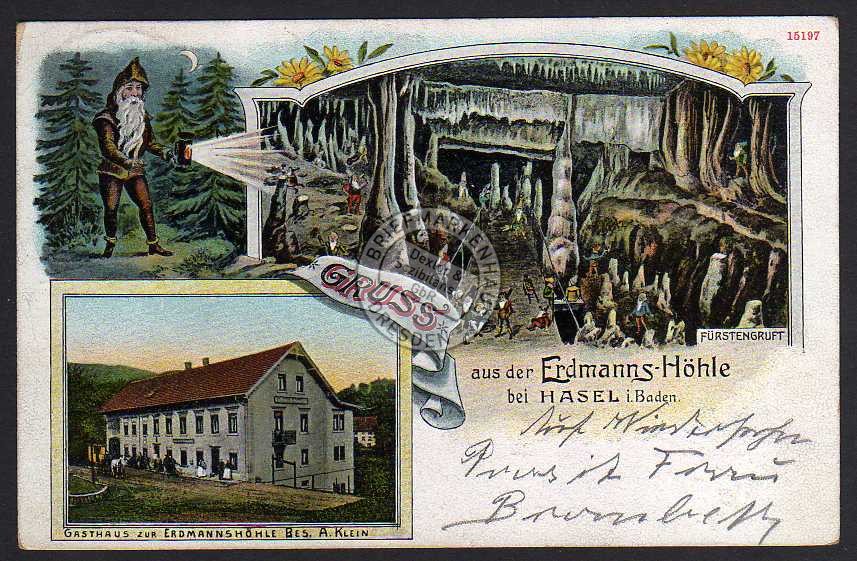 15197
GRUSS
FÜRSTENGRUFT
aus der Erdmanns-Höhle
bei HASEL i. Baden.
Auf Wiedersehn
GASTHAUS ZUR ERDMANNSHÖHLE BES. A. KLEIN
BRIEFMARKENHAUS
GbR
DRESDEN